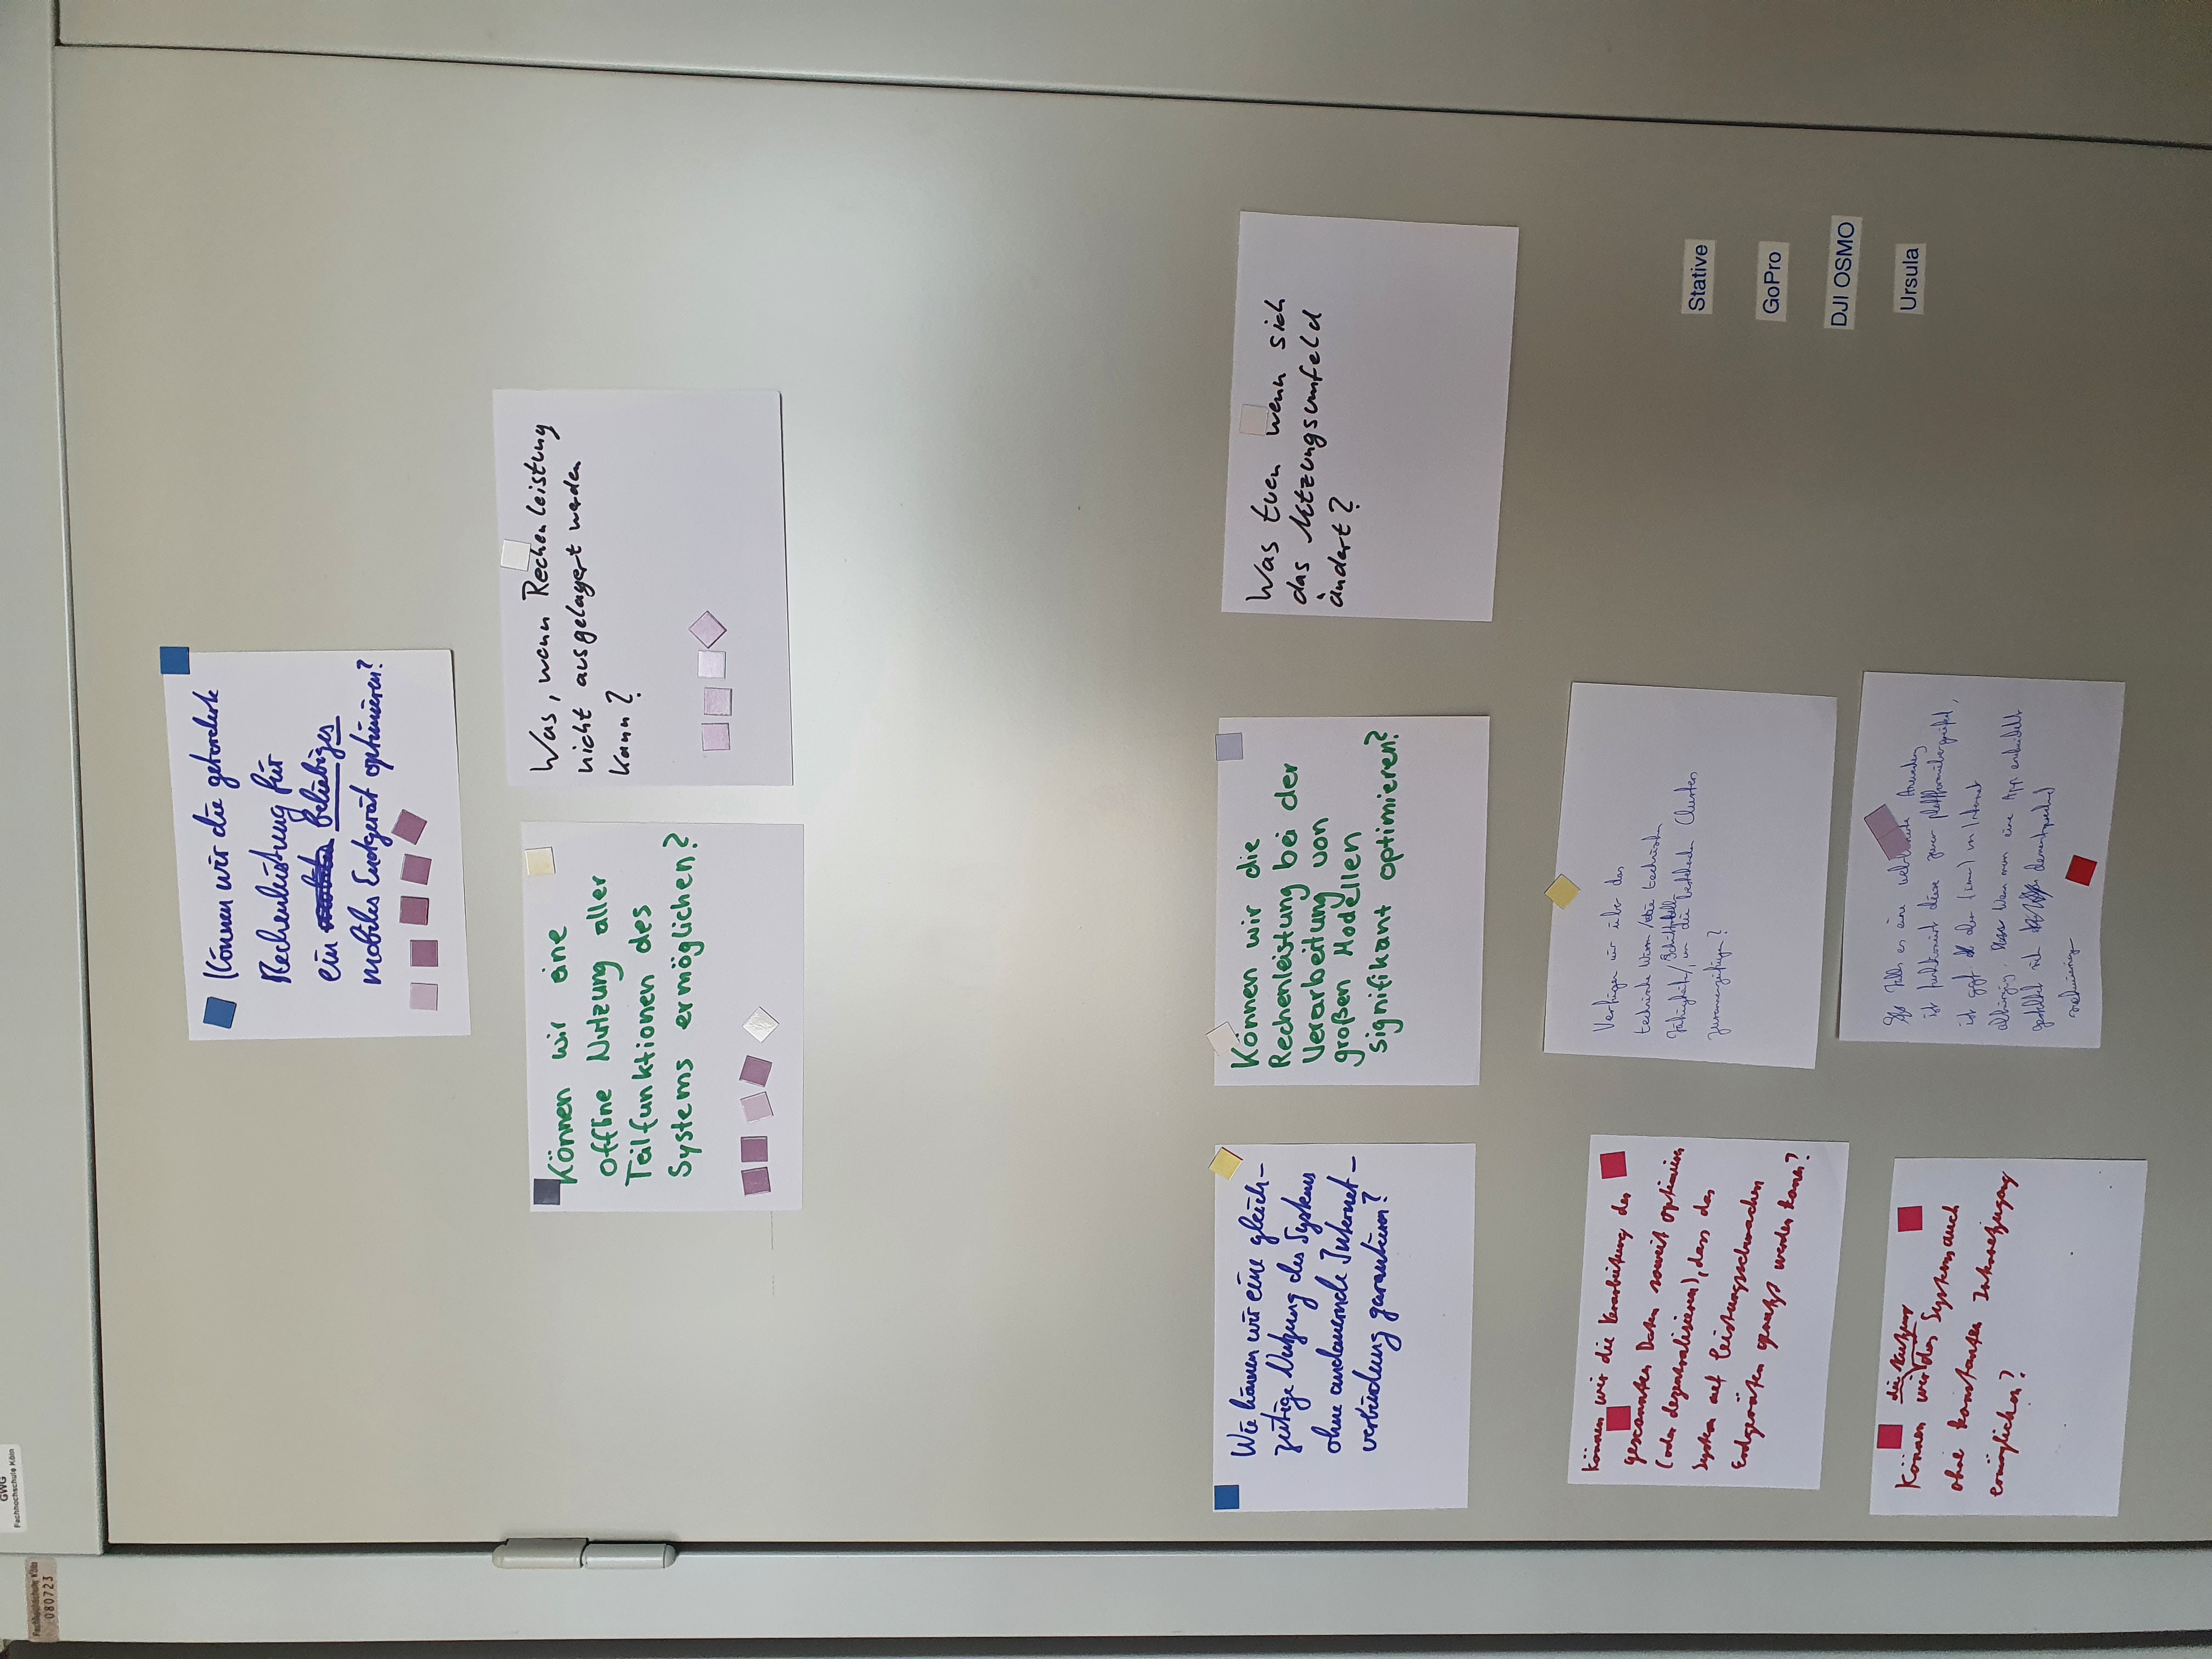 GWG
Fachhochschule Köln
Fachhochschule Köln
080723
Können wir die geforderte
Rechenleistung für
ein beliebiges
mobiles Endgerät optimieren?
Können wir eine
offline Nutzung aller
Teilfunktionen des
Systems ermöglichen?
Was, wenn Rechenleistung
nicht ausgelagert werden
kann?
Wie können wir eine gleich-
zeitige Nutzung des Systems
ohne andauernde Internet-
verbindung garantieren?
Können wir die
Rechenleistung bei der
Verarbeitung von
großen Modellen
signifikant optimieren?
Was tuen wenn sich
das Nutzungsumfeld
ändert?
Können wir die Verarbeitung der
gescannten Daten soweit optimieren
(oder dezentralisieren), dass das
System auf leistungsschwachen
Endgeräten genutzt werden kann?
Verfügen wir über das
technische Wissen / die technischen
Fähigkeiten / Schnittstellen, um die bestehenden Clusters
zusammenzufügen?
die Nutzung
Können wir des Systems auch
ohne konstanten Internetzugang
ermöglichen?
Falls es eine Anwendung
ist funktioniert diese zwar plattformübergreifend,
ist ggf. aber (immer) von Internet
abhängig. Wenn man eine App entwickelt
gestaltet sich dementsprechend
schwieriger
Stative
GoPro
DJI OSMO
Ursula